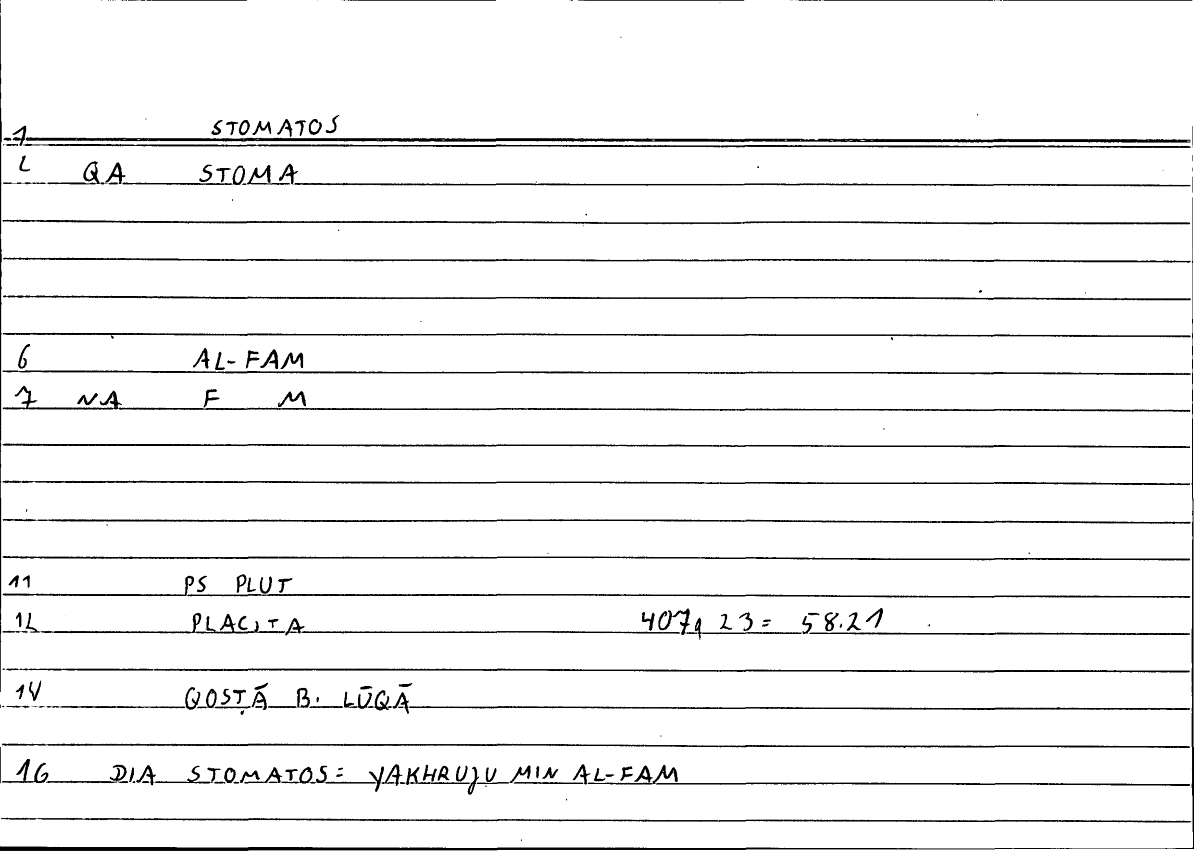 1 STOMATOS
2 QA STOMA
6 AL-FAM
7 NA F M
11 PS PLUT
12 PLACITA 407a 23 = 58.21
14 QOSṬĀ B. LŪQĀ
16 DIA STOMATOS = YAKHRUJU MIN AL-FAM